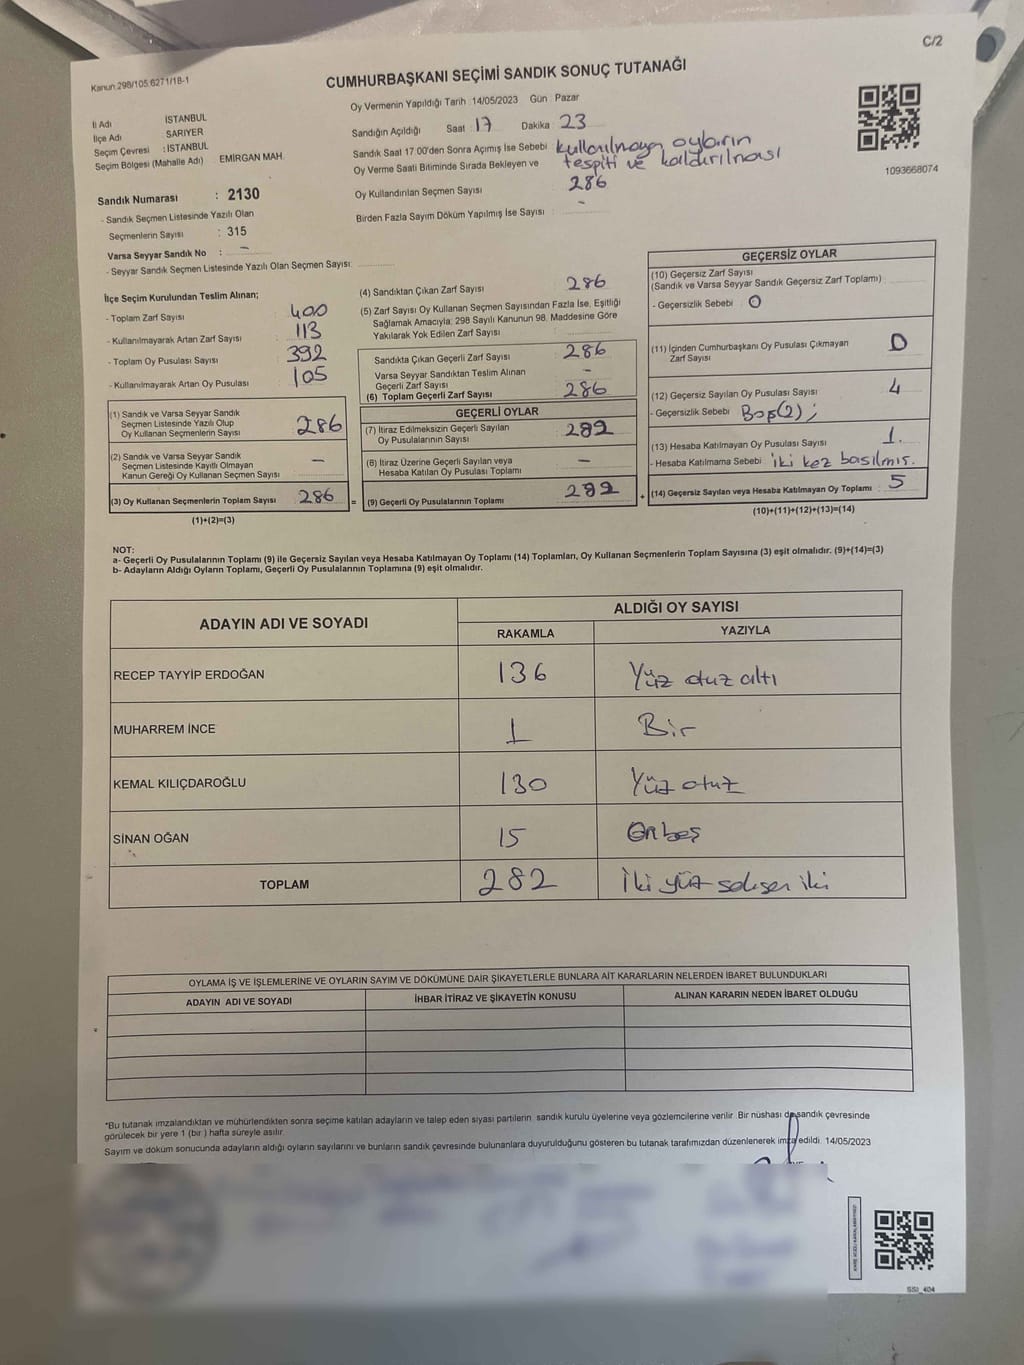 C/2
Kanun:298/105.6271/18-1
CUMHURBAŞKANI SEÇİMİ SANDIK SONUÇ TUTANAĞI
İl Adı İSTANBUL
İlçe Adı SARIYER
Seçim Çevresi : İSTANBUL
Seçim Bölgesi (Mahalle Adı) EMİRGAN MAH.
Sandık Numarası : 2130
- Sandık Seçmen Listesinde Yazılı Olan
Seçmenlerin Sayısı : 315
Varsa Seyyar Sandık No : -
- Seyyar Sandık Seçmen Listesinde Yazılı Olan Seçmen Sayısı:
Oy Vermenin Yapıldığı Tarih : 14/05/2023 Gün : Pazar
Sandığın Açıldığı Saat : 17 Dakika : 23
Sandık Saat 17:00'den Sonra Açımış İse Sebebi kullanılmayan oyların
Oy Verme Saati Bitiminde Sırada Bekleyen ve tespiti ve kaldırılması
Oy Kullandırılan Seçmen Sayısı 286
Birden Fazla Sayım Döküm Yapılmış İse Sayısı : -
1093668074
İlçe Seçim Kurulundan Teslim Alınan;
- Toplam Zarf Sayısı : 400
- Kullanılmayarak Artan Zarf Sayısı : 113
- Toplam Oy Pusulası Sayısı : 392
- Kullanılmayarak Artan Oy Pusulası : 105
(1) Sandık ve Varsa Seyyar Sandık
Seçmen Listesinde Yazılı Olup
Oy Kullanan Seçmenlerin Sayısı : 286
(2) Sandık ve Varsa Seyyar Sandık
Seçmen Listesinde Kayıtlı Olmayan
Kanun Gereği Oy Kullanan Seçmen Sayısı : -
(3) Oy Kullanan Seçmenlerin Toplam Sayısı : 286 =
(1)+(2)=(3)
(4) Sandıktan Çıkan Zarf Sayısı : 286
(5) Zarf Sayısı Oy Kullanan Seçmen Sayısından Fazla İse, Eşitliği
Sağlamak Amacıyla; 298 Sayılı Kanunun 98. Maddesine Göre
Yakılarak Yok Edilen Zarf Sayısı :
Sandıkta Çıkan Geçerli Zarf Sayısı : 286
Varsa Seyyar Sandıktan Teslim Alınan
Geçerli Zarf Sayısı : -
(6) Toplam Geçerli Zarf Sayısı : 286
GEÇERLİ OYLAR
(7) İtiraz Edilmeksizin Geçerli Sayılan
Oy Pusulalarının Sayısı : 282
(8) İtiraz Üzerine Geçerli Sayılan veya
Hesaba Katılan Oy Pusulası Toplamı : -
(9) Geçerli Oy Pusulalarının Toplamı : 282 +
GEÇERSİZ OYLAR
(10) Geçersiz Zarf Sayısı
(Sandık ve Varsa Seyyar Sandık Geçersiz Zarf Toplamı) :
- Geçersizlik Sebebi : 0
(11) İçinden Cumhurbaşkanı Oy Pusulası Çıkmayan
Zarf Sayısı : 0
(12) Geçersiz Sayılan Oy Pusulası Sayısı : 4
- Geçersizlik Sebebi : Boş(2);
(13) Hesaba Katılmayan Oy Pusulası Sayısı : 1.
- Hesaba Katılmama Sebebi : iki kez basılmış.
(14) Geçersiz Sayılan veya Hesaba Katılmayan Oy Toplamı : 5
(10)+(11)+(12)+(13)=(14)
NOT:
a- Geçerli Oy Pusulalarının Toplamı (9) ile Geçersiz Sayılan veya Hesaba Katılmayan Oy Toplamı (14) Toplamları, Oy Kullanan Seçmenlerin Toplam Sayısına (3) eşit olmalıdır. (9)+(14)=(3)
b- Adayların Aldığı Oyların Toplamı, Geçerli Oy Pusulalarının Toplamına (9) eşit olmalıdır.
ADAYIN ADI VE SOYADI
ALDIĞI OY SAYISI
RAKAMLA YAZIYLA
RECEP TAYYİP ERDOĞAN 136 Yüz otuz altı
MUHARREM İNCE 1 Bir
KEMAL KILIÇDAROĞLU 130 Yüz otuz
SİNAN OĞAN 15 Onbeş
TOPLAM 282 İki yüz seksen iki
OYLAMA İŞ VE İŞLEMLERİNE VE OYLARIN SAYIM VE DÖKÜMÜNE DAİR ŞİKAYETLERLE BUNLARA AİT KARARLARIN NELERDEN İBARET BULUNDUKLARI
ADAYIN ADI VE SOYADI İHBAR İTİRAZ VE ŞİKAYETİN KONUSU ALINAN KARARIN NEDEN İBARET OLDUĞU
"Bu tutanak imzalandıktan ve mühürlendikten sonra seçime katılan adayların ve talep eden siyasi partilerin, sandık kurulu üyelerine veya gözlemcilerine verilir. Bir nüshası da sandık çevresinde
görülecek bir yere 1 (bir ) hafta süreyle asılır.
Sayım ve döküm sonucunda adayların aldığı oyların sayılarını ve bunların sandık çevresinde bulunanlara duyurulduğunu gösteren bu tutanak tarafımızdan düzenlenerek imza edildi. 14/05/2023
SSI_404